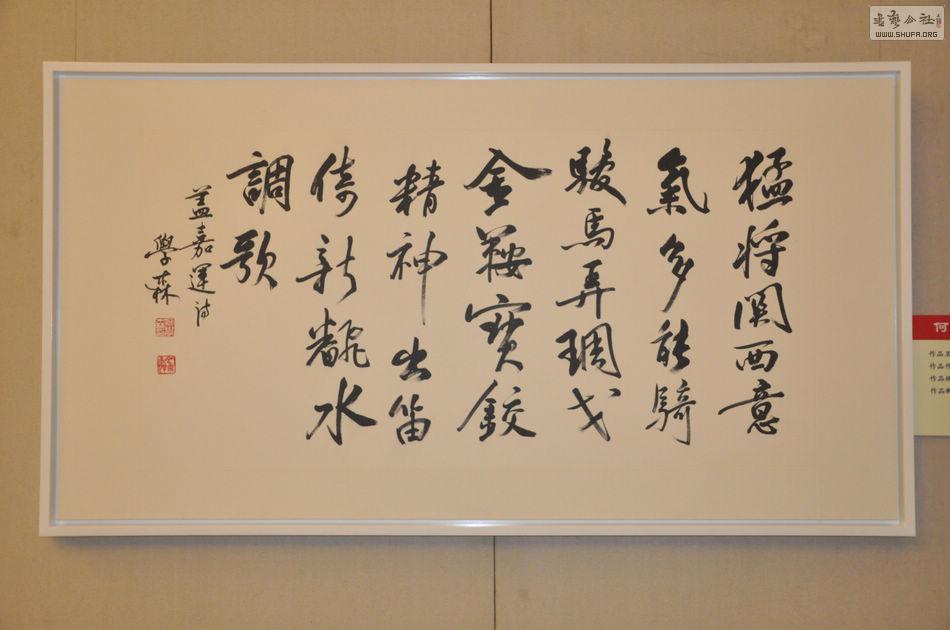 猛将関西意
氣多能騎
駿馬弄琱戈
金鞍寶鉸
精神出笛
倚新飜水
調歌
盖嘉運詩
學森
書藝公社
WWW.SHUFA.ORG
何
作品
作品作
作品
作品